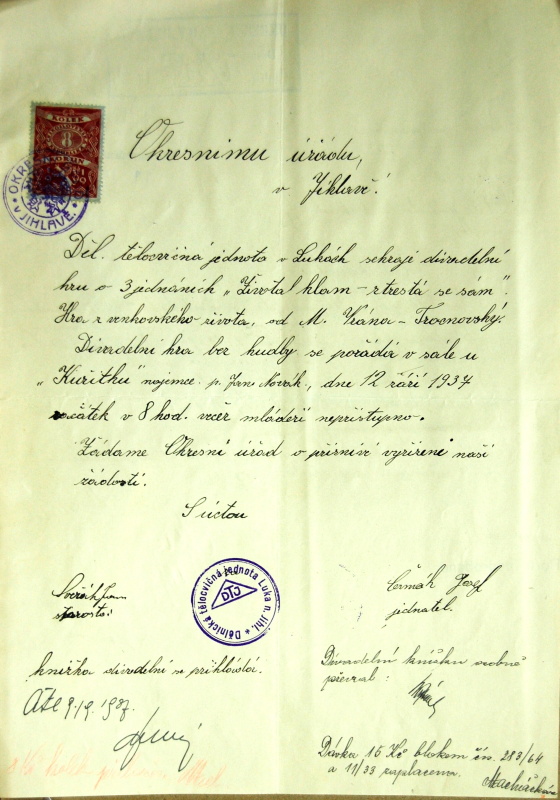 KOLEK
8
KORUN
OKRE
V JIHLAVĚ
Okresnímu úřadu,
v Jihlavě!
Děl. tělocvičná jednota v Lukách sehraje divadelní
hru o 3 jednáních „Život a klam – ztrestá se sám".
Hra z venkovského života, od M. Vrána – Trocnovský.
Divadelní hra bez hudby se pořádá v sále u
„Kuřítků" najemce p. Jan Novák, dne 12 září 1937
začátek v 8 hod. večer mládeži nepřístupno.
Žádáme Okresní úřad o příznivé vyřízení naší
žádosti.
S úctou
Dělnická tělocvičná jednota Luka n. Jihl.
DTJ
starosta
Čermák Josef
jednatel.
knížka divadelní se přikládá.
9/9. 1937.
Divadelní knížku osobně
převzal:
Dávka 15 Kč blokem čís. 283/64
a 11/33 zaplacena.